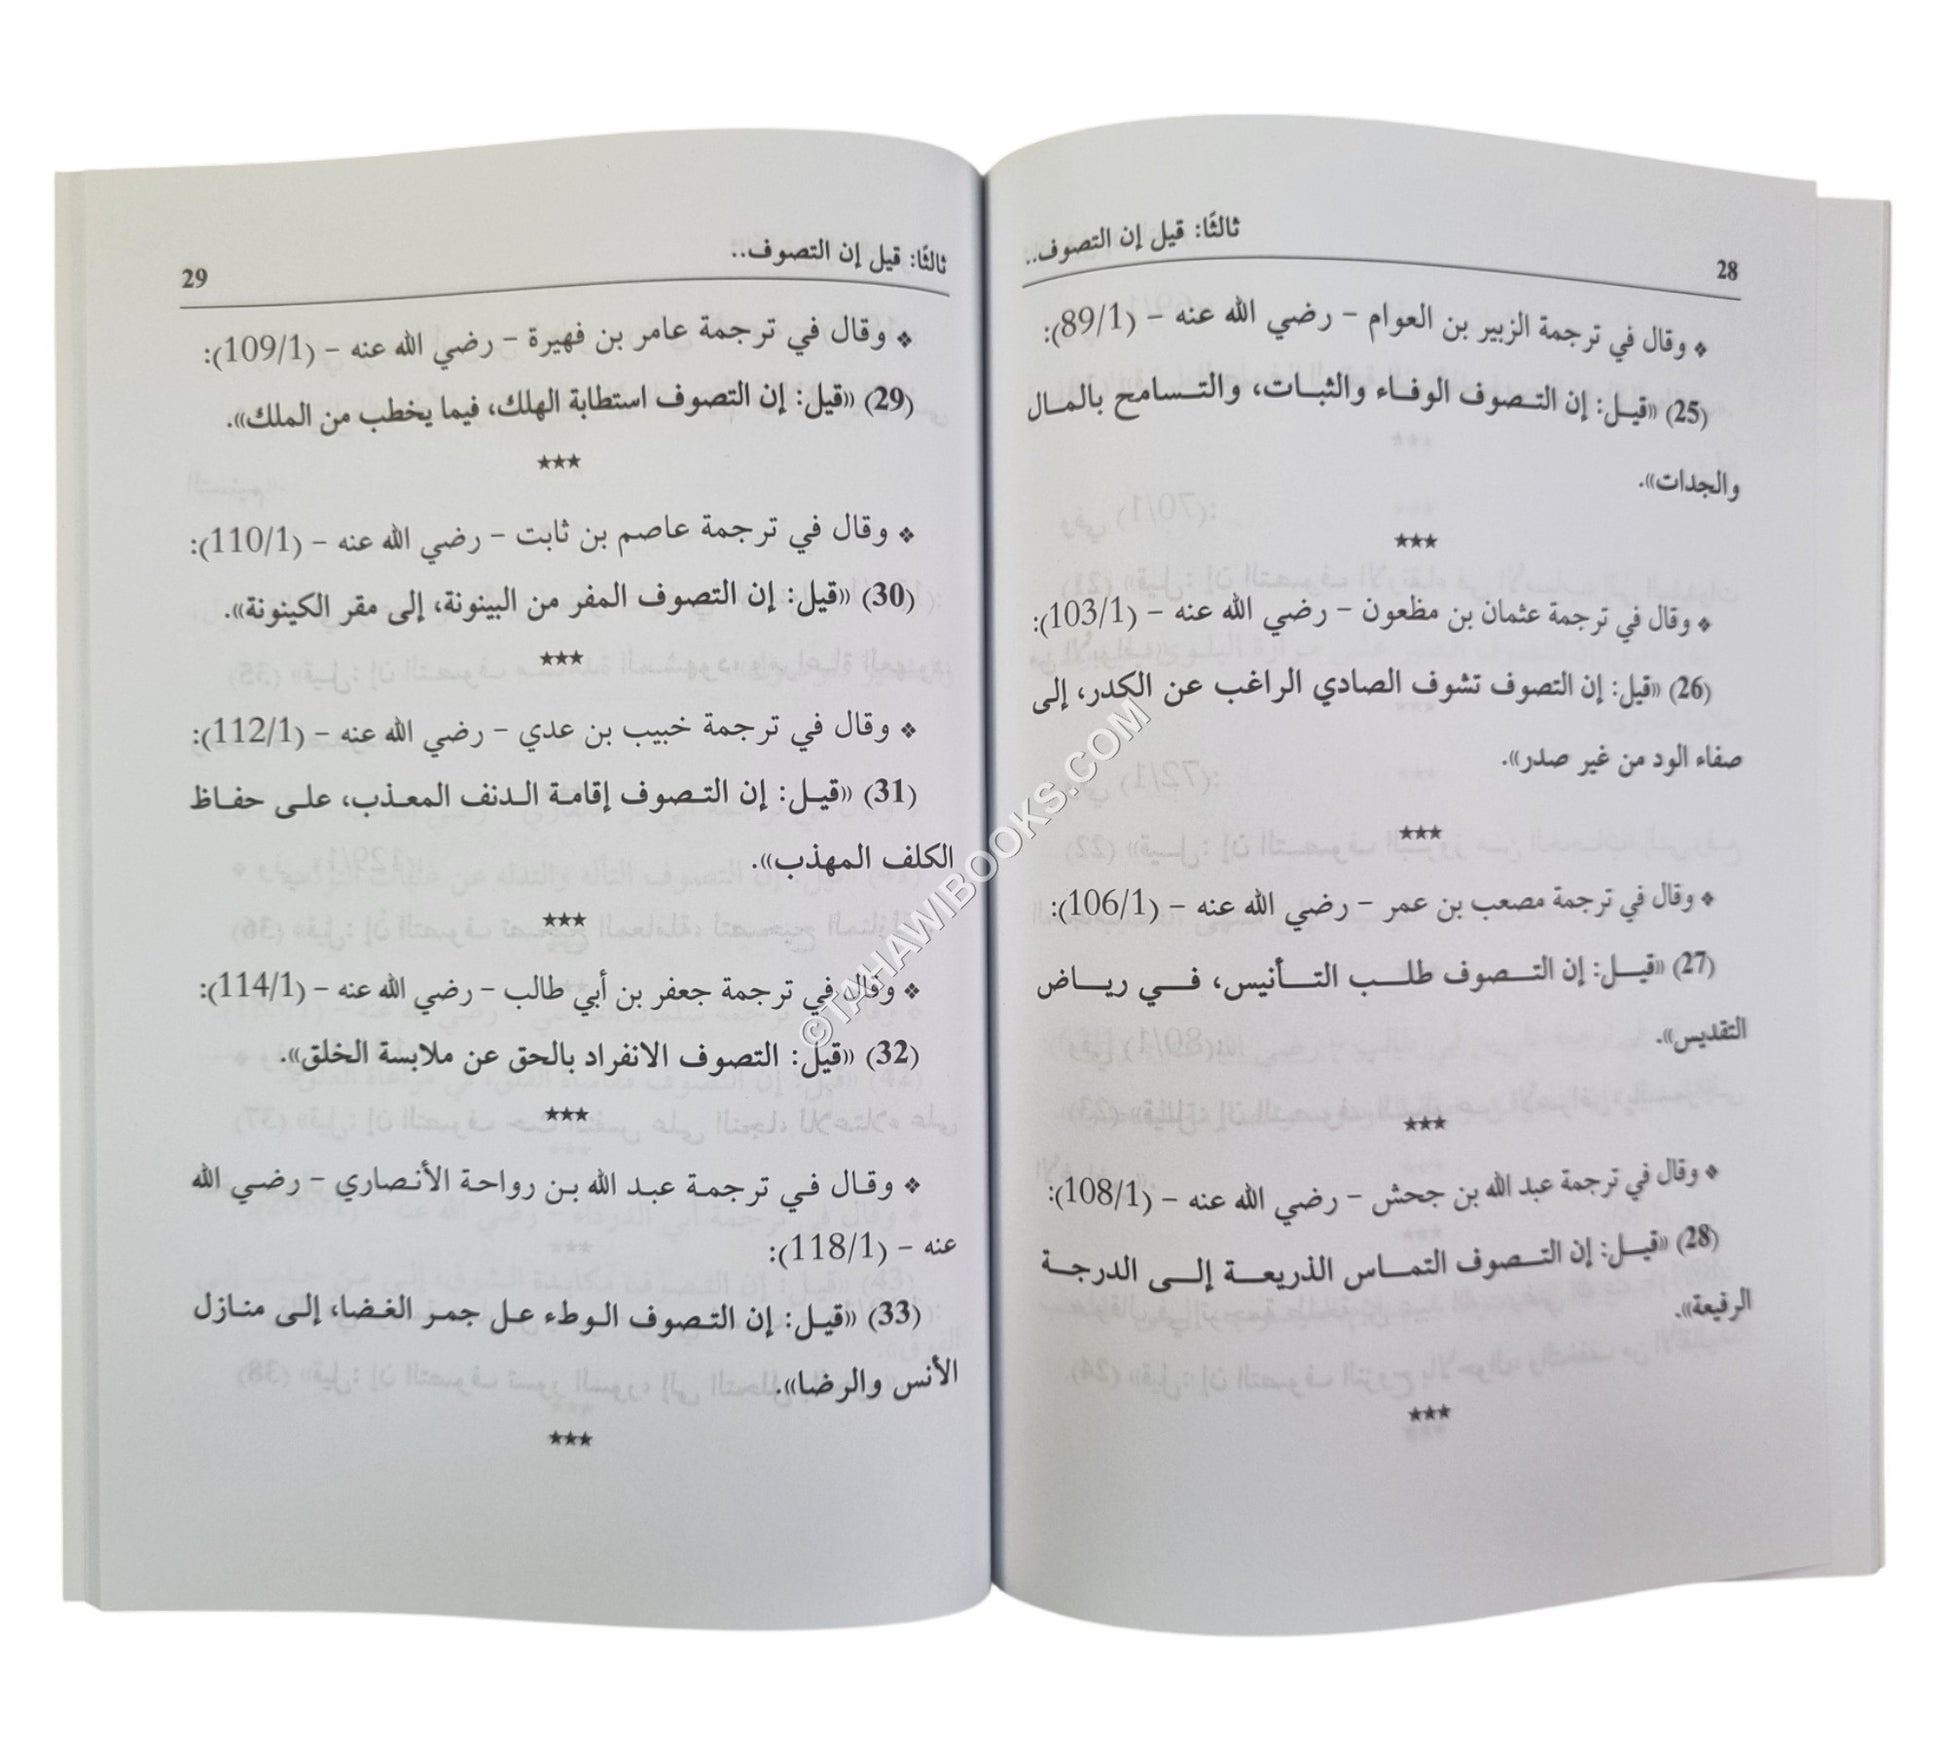 28
ثالثًا: قيل إن التصوف..
❖ وقال في ترجمة الزبير بن العوام – رضي الله عنه – (89/1):
(25) «قيل: إن التصوف الوفاء والثبات، والتسامح بالمال
والجدات».
***
❖ وقال في ترجمة عثمان بن مظعون – رضي الله عنه – (103/1):
(26) «قيل: إن التصوف تشوف الصادي الراغب عن الكدر، إلى
صفاء الود من غير صدر».
***
❖ وقال في ترجمة مصعب بن عمر – رضي الله عنه – (106/1):
(27) «قيل: إن التصوف طلب التأنيس، في رياض
التقديس».
***
❖ وقال في ترجمة عبد الله بن جحش – رضي الله عنه – (108/1):
(28) «قيل: إن التصوف التماس الذريعة إلى الدرجة
الرفيعة».
***
ثالثًا: قيل إن التصوف..
29
❖ وقال في ترجمة عامر بن فهيرة – رضي الله عنه – (109/1):
(29) «قيل: إن التصوف استطابة الهلك، فيما يخطب من الملك».
***
❖ وقال في ترجمة عاصم بن ثابت – رضي الله عنه – (110/1):
(30) «قيل: إن التصوف المفر من البينونة، إلى مقر الكينونة».
***
❖ وقال في ترجمة خبيب بن عدي – رضي الله عنه – (112/1):
(31) «قيل: إن التصوف إقامة الدنف المعذب، على حفاظ
الكلف المهذب».
***
❖ وقال في ترجمة جعفر بن أبي طالب – رضي الله عنه – (114/1):
(32) «قيل: التصوف الانفراد بالحق عن ملابسة الخلق».
***
❖ وقال في ترجمة عبد الله بن رواحة الأنصاري – رضي الله
عنه – (118/1):
(33) «قيل: إن التصوف الوطء عل جمر الغضا، إلى منازل
الأنس والرضا».
***
©TAHAWIBOOKS.COM